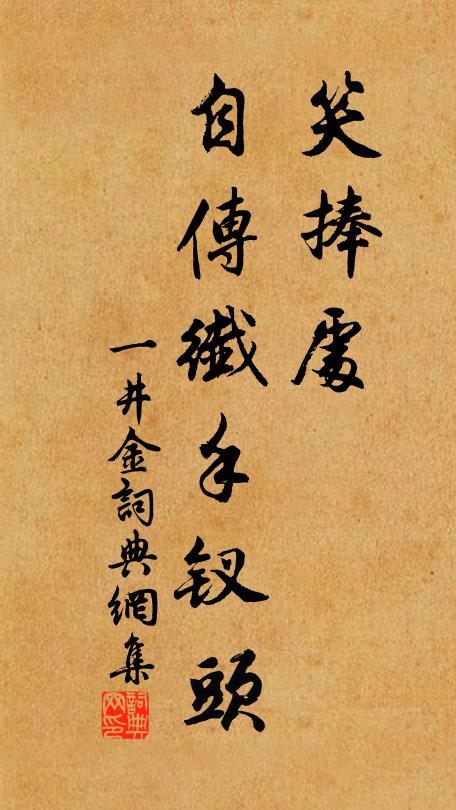 笑捧處
自傳纖手釵頭
一井金詞典網集
詞典
网印